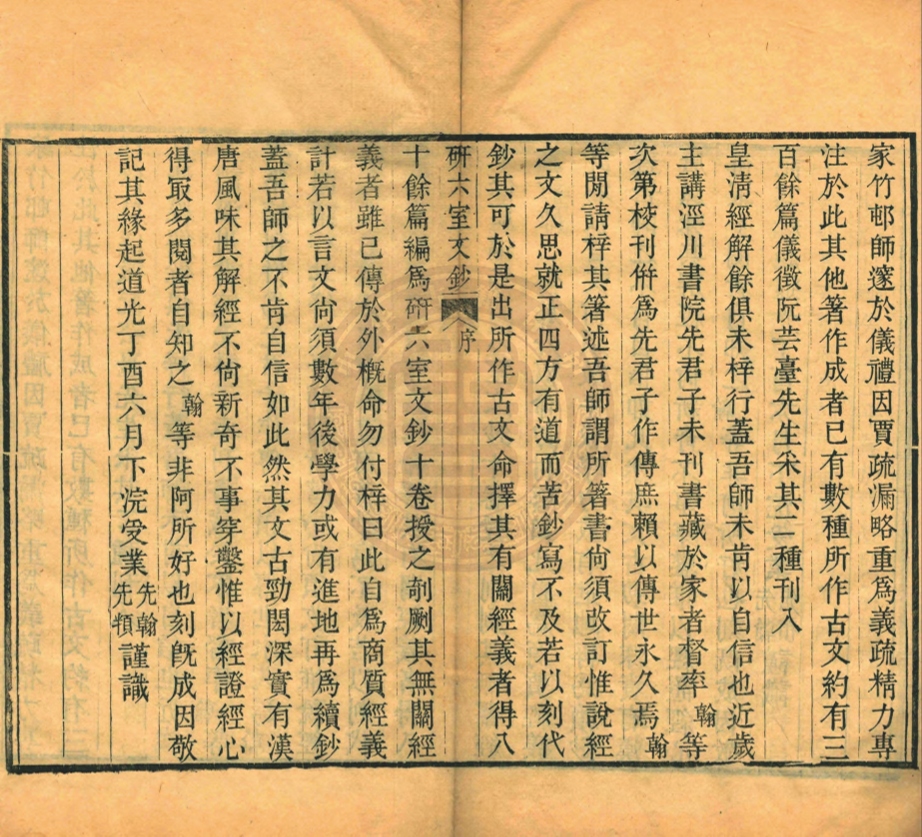 家竹邨師邃於儀禮因賈疏漏略重爲義疏精力專
注於此其他著作成者已有數種所作古文約有三
百餘篇儀徵阮芸臺先生采其二種刊入
皇淸經解餘俱未梓行蓋吾師未肯以自信也近歲
主講涇川書院先君子未刊書藏於家者督率翰等
次第校刊倂爲先君子作傳庶賴以傳世永久焉翰
等閒請梓其箸述吾師謂所箸書尙須改訂惟說經
之文久思就正四方有道而苦鈔寫不及若以刻代
鈔其可於是出所作古文命擇其有關經義者得八
研六室文鈔 序
十餘篇編爲研六室文鈔十卷授之剞劂其無關經
義者雖已傳於外概命勿付梓曰此自爲商質經義
計若以言文尙須數年後學力或有進地再爲續鈔
蓋吾師之不肯自信如此然其文古勁閎深實有漢
唐風味其解經不尙新奇不事穿鑿惟以經證經心
得冣多閱者自知之翰等非阿所好也刻旣成因敬
記其緣起道光丁酉六月下浣受業先翰先頖謹識